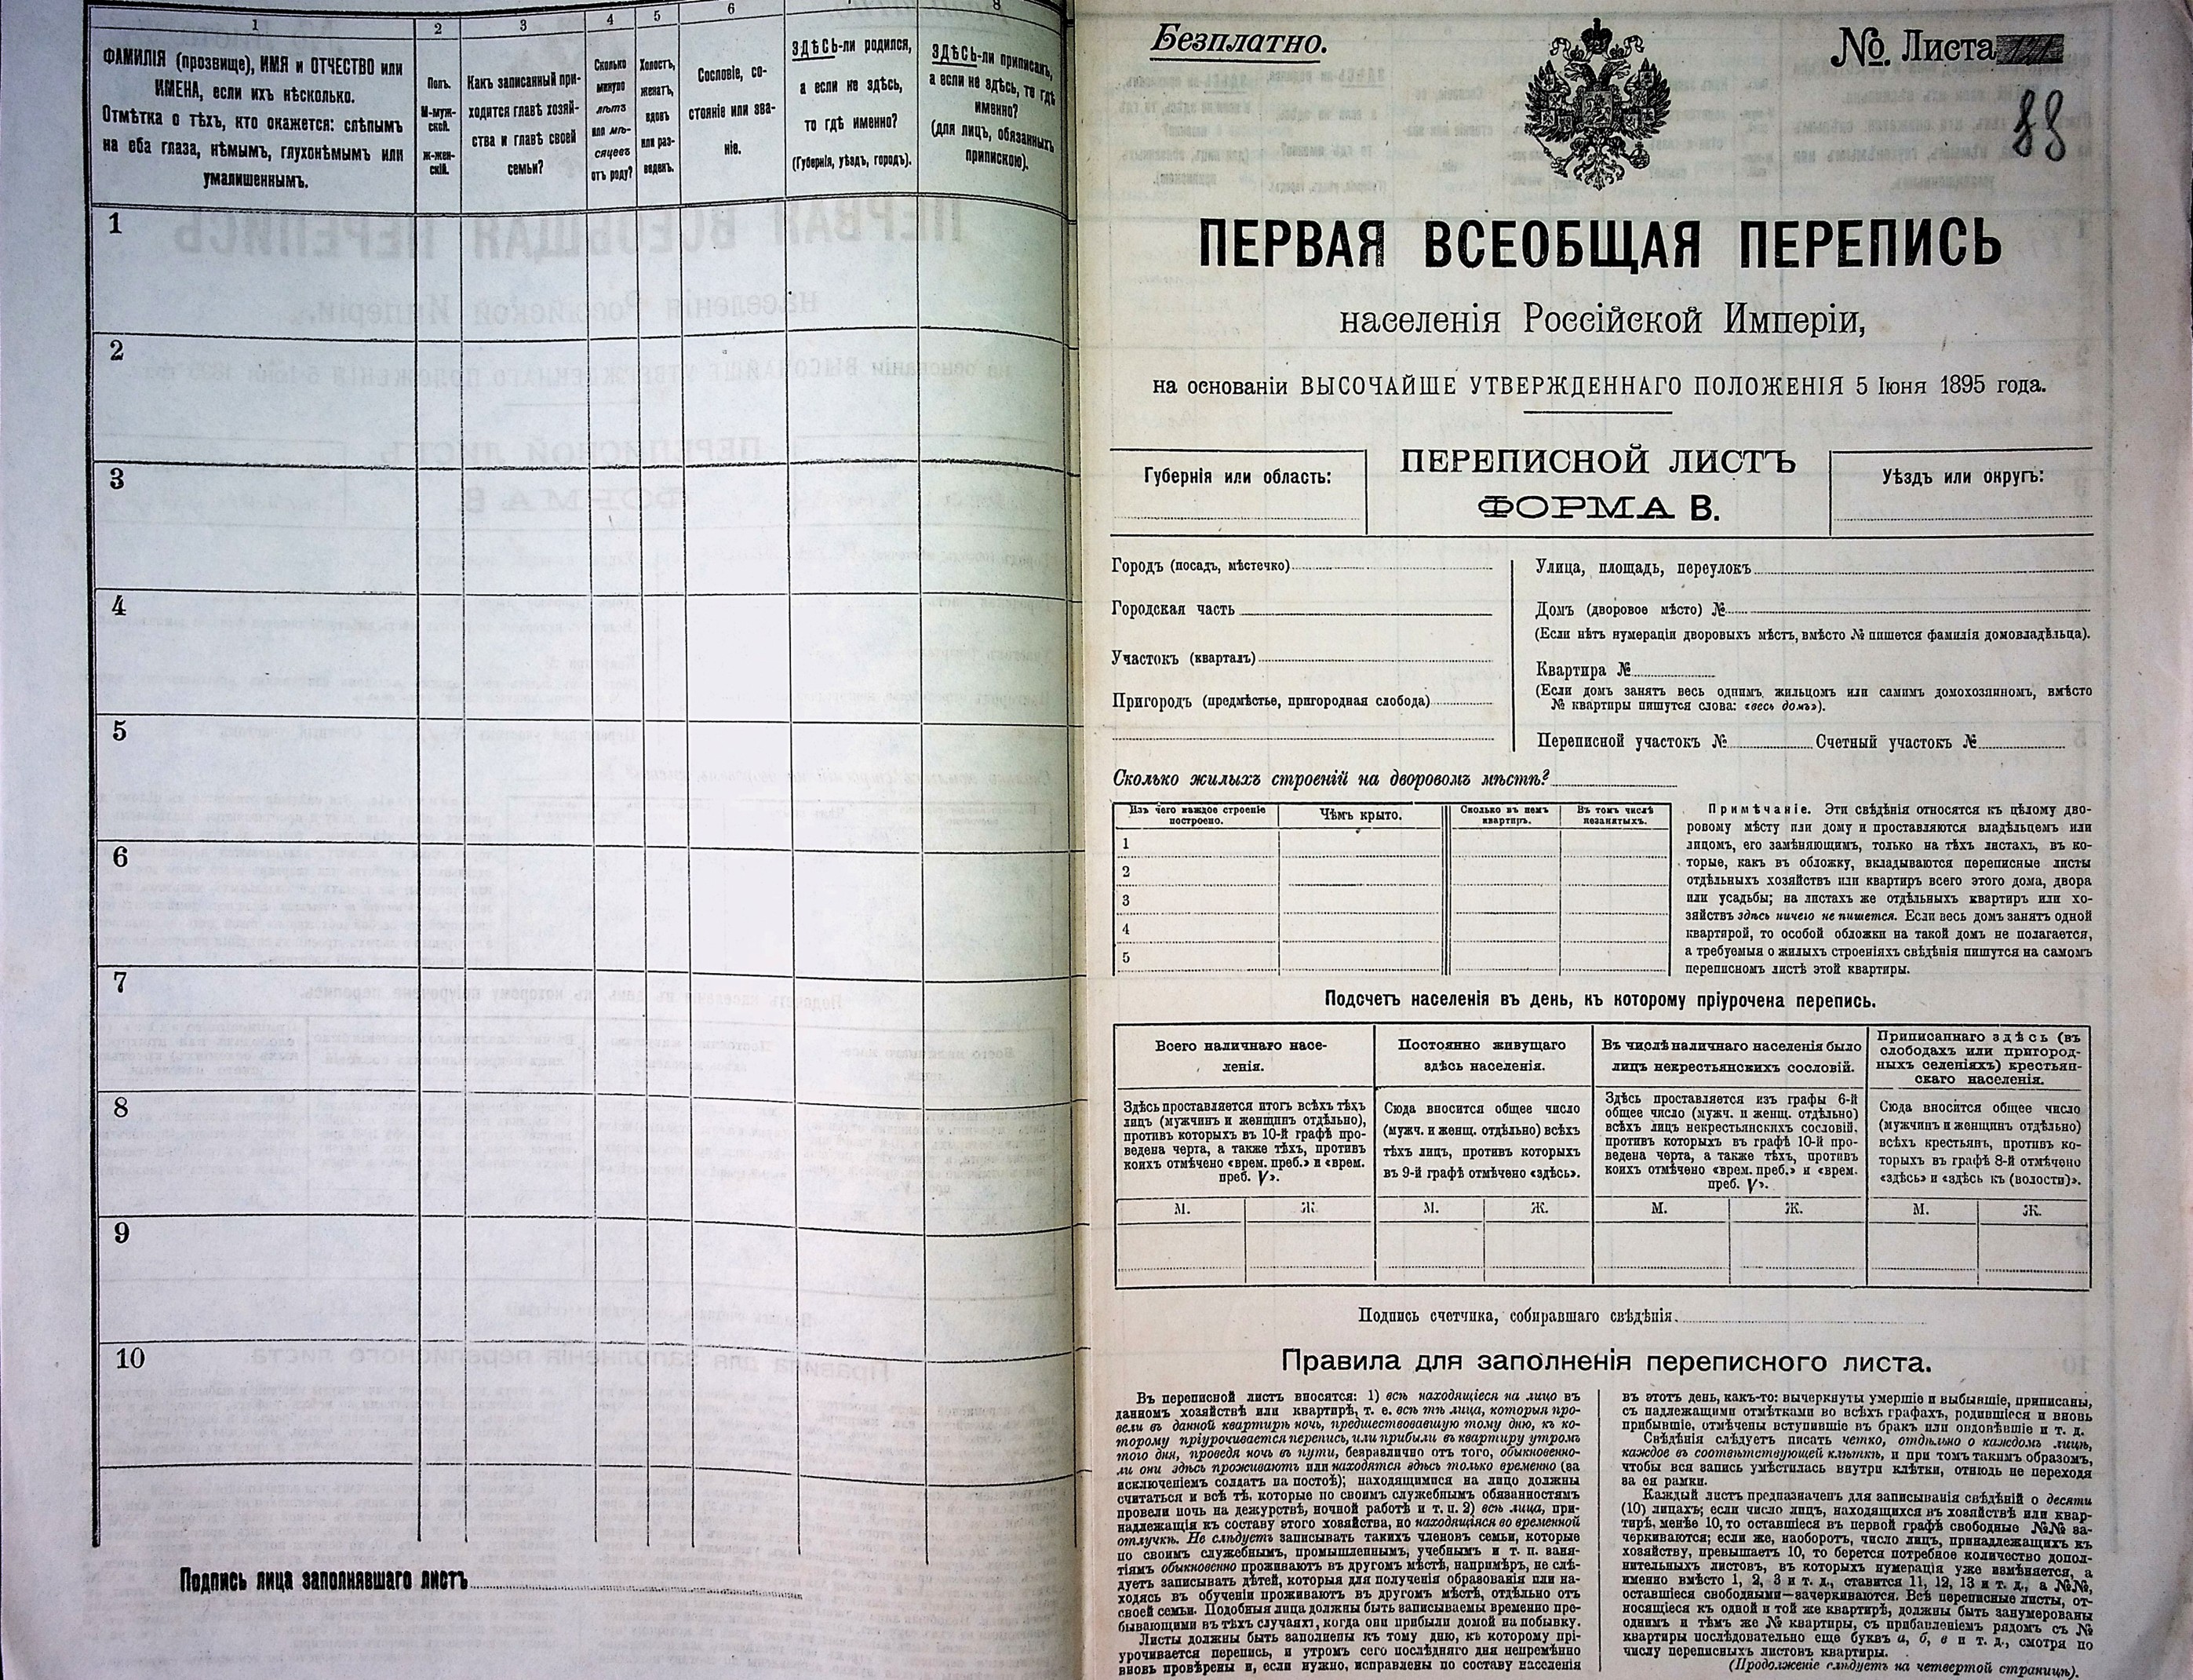 1
ФАМИЛІЯ (прозвище), ИМЯ и ОТЧЕСТВО или
ИМЕНА, если ихъ нѣсколько.
Отмѣтка о тѣхъ, кто окажется: слѣпымъ
на оба глаза, нѣмымъ, глухонѣмымъ или
умалишеннымъ.
2
Полъ.
М-муж-
ской.
ж-жен-
скій.
3
Какъ записанный при-
ходится главѣ хозяй-
ства и главѣ своей
семьи?
4
Сколько
минуло
лѣтъ
или мѣ-
сяцевъ
отъ роду?
5
Холостъ,
женатъ,
вдовъ
или раз-
веденъ.
6
Сословіе, со-
стояніе или зва-
ніе.
ЗДѢСЬ-ли родился,
а если не здѣсь,
то гдѣ именно?
(Губернія, уѣздъ, городъ).
8
ЗДѢСЬ-ли приписанъ,
а если не здѣсь, то гдѣ
именно?
(для лицъ, обязанныхъ
припискою).
1
2
3
4
5
6
7
8
9
10
Подпись лица заполнявшаго листъ
Безплатно.
№. Листа
88
ПЕРВАЯ ВСЕОБЩАЯ ПЕРЕПИСЬ
населенія Россійской Имперіи,
на основаніи ВЫСОЧАЙШЕ УТВЕРЖДЕННАГО ПОЛОЖЕНІЯ 5 Іюня 1895 года.
Губернія или область:
ПЕРЕПИСНОЙ ЛИСТЪ
ФОРМА В.
Уѣздъ или округъ:
Городъ (посадъ, мѣстечко)
Городская часть
Участокъ (кварталъ)
Пригородъ (предмѣстье, пригородная слобода)
Улица, площадь, переулокъ
Домъ (дворовое мѣсто) №
(Если нѣтъ нумераціи дворовыхъ мѣстъ, вмѣсто № пишется фамилія домовладѣльца).
Квартира №
(Если домъ занятъ весь однимъ жильцомъ или самимъ домохозяиномъ, вмѣсто
№ квартиры пишутся слова: «весь домъ»).
Переписной участокъ № Счетный участокъ №
Сколько жилыхъ строеній на дворовомъ мѣстѣ?
Изъ чего каждое строеніе
построено.
Чѣмъ крыто.
Сколько въ немъ
квартиръ.
Въ томъ числѣ
незанятыхъ.
1
2
3
4
5
Примѣчаніе. Эти свѣдѣнія относятся къ цѣлому дво-
ровому мѣсту или дому и проставляются владѣльцемъ или
лицомъ, его замѣняющимъ, только на тѣхъ листахъ, въ ко-
торые, какъ въ обложку, вкладываются переписные листы
отдѣльныхъ хозяйствъ или квартиръ всего этого дома, двора
или усадьбы; на листахъ же отдѣльныхъ квартиръ или хо-
зяйствъ здѣсь ничего не пишется. Если весь домъ занятъ одной
квартирой, то особой обложки на такой домъ не полагается,
а требуемыя о жилыхъ строеніяхъ свѣдѣнія пишутся на самомъ
переписномъ листѣ этой квартиры.
Подсчетъ населенія въ день, къ которому пріурочена перепись.
Всего наличнаго насе-
ленія.
Постоянно живущаго
здѣсь населенія.
Въ числѣ наличнаго населенія было
лицъ некрестьянскихъ сословій.
Приписаннаго здѣсь (въ
слободахъ или пригород-
ныхъ селеніяхъ) крестьян-
скаго населенія.
Здѣсь проставляется итогъ всѣхъ тѣхъ
лицъ (мужчинъ и женщинъ отдѣльно),
противъ которыхъ въ 10-й графѣ про-
ведена черта, а также тѣхъ, противъ
коихъ отмѣчено «врем. преб.» и «врем.
преб. V».
Сюда вносится общее число
(мужч. и женщ. отдѣльно) всѣхъ
тѣхъ лицъ, противъ которыхъ
въ 9-й графѣ отмѣчено «здѣсь».
Здѣсь проставляется изъ графы 6-й
общее число (мужч. и женщ. отдѣльно)
всѣхъ лицъ некрестьянскихъ сословій,
противъ которыхъ въ графѣ 10-й про-
ведена черта, а также тѣхъ, противъ
коихъ отмѣчено «врем. преб.» и «врем.
преб. V».
Сюда вносится общее число
(мужчинъ и женщинъ отдѣльно)
всѣхъ крестьянъ, противъ ко-
торыхъ въ графѣ 8-й отмѣчено
«здѣсь» и «здѣсь къ (волости)».
М. Ж. М. Ж. М. Ж. М. Ж.
Подпись счетчика, собиравшаго свѣдѣнія.
Правила для заполненія переписного листа.
Въ переписной листъ вносятся: 1) всѣ находящіеся на лицо въ
данномъ хозяйствѣ или квартирѣ, т. е. всѣ тѣ лица, которыя про-
вели въ данной квартирѣ ночь, предшествовавшую тому дню, къ ко-
торому пріурочивается перепись, или прибыли въ квартиру утромъ
того дня, проведя ночь въ пути, безразлично отъ того, обыкновенно-
ли они здѣсь проживаютъ или находятся здѣсь только временно (за
исключеніемъ солдатъ на постоѣ); находящимися на лицо должны
считаться и всѣ тѣ, которые по своимъ служебнымъ обязанностямъ
провели ночь на дежурствѣ, ночной работѣ и т. п. 2) всѣ лица, при-
надлежащія къ составу этого хозяйства, но находящіяся во временной
отлучкѣ. Не слѣдуетъ записывать такихъ членовъ семьи, которые
по своимъ служебнымъ, промышленнымъ, учебнымъ и т. п. заня-
тіямъ обыкновенно проживаютъ въ другомъ мѣстѣ, напримѣръ, не слѣ-
дуетъ записывать дѣтей, которыя для полученія образованія или на-
ходясь въ обученіи проживаютъ въ другомъ мѣстѣ, отдѣльно отъ
своей семьи. Подобныя лица должны быть записываемы временно пре-
бывающими въ тѣхъ случаяхъ, когда они прибыли домой на побывку.
Листы должны быть заполнены къ тому дню, къ которому прі-
урочивается перепись, и утромъ сего послѣдняго дня непремѣнно
вновь провѣрены и, если нужно, исправлены по составу населенія
въ этотъ день, какъ-то: вычеркнуты умершіе и выбывшіе, приписаны,
съ надлежащими отмѣтками во всѣхъ графахъ, родившіеся и вновь
прибывшіе, отмѣчены вступившіе въ бракъ или овдовѣвшіе и т. д.
Свѣдѣнія слѣдуетъ писать четко, отдѣльно о каждомъ лицѣ,
каждое въ соотвѣтствующей клѣткѣ, и при томъ такимъ образомъ,
чтобы вся запись умѣстилась внутри клѣтки, отнюдь не переходя
за ея рамки.
Каждый листъ предназначенъ для записыванія свѣдѣній о десяти
(10) лицахъ; если число лицъ, находящихся въ хозяйствѣ или квар-
тирѣ, менѣе 10, то оставшіеся въ первой графѣ свободные №№ за-
черкиваются; если же, наоборотъ, число лицъ, принадлежащихъ къ
хозяйству, превышаетъ 10, то берется потребное количество допол-
нительныхъ листовъ, въ которыхъ нумерація уже измѣняется, а
именно вмѣсто 1, 2, 3 и т. д., ставится 11, 12, 13 и т. д., а №№,
оставшіеся свободными—зачеркиваются. Всѣ переписные листы, от-
носящіеся къ одной и той же квартирѣ, должны быть занумерованы
однимъ и тѣмъ же № квартиры, съ прибавленіемъ рядомъ съ №
квартиры послѣдовательно еще буквъ а, б, в и т. д., смотря по
числу переписныхъ листовъ квартиры.
(Продолженіе слѣдуетъ на четвертой страницѣ).